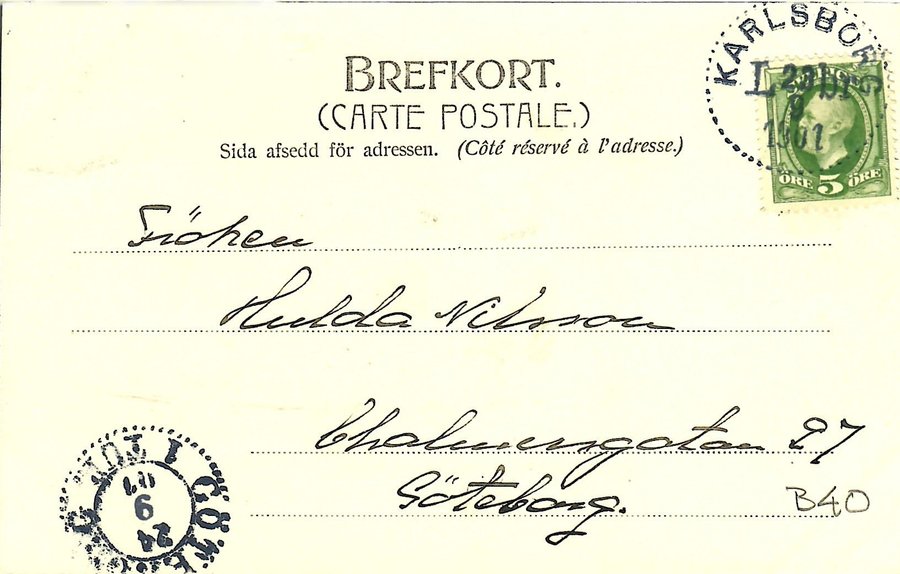 BREFKORT.
(CARTE POSTALE.)
Sida afsedd för adressen. (Côté réservé à l'adresse.)
KARLSBORG
9
1901
ÖRE 5 ÖRE
Fröken
Hulda Nilsson
Chalmersgatan 27
Göteborg.
B40
GÖTEBORG 1 TUR
24
9
01